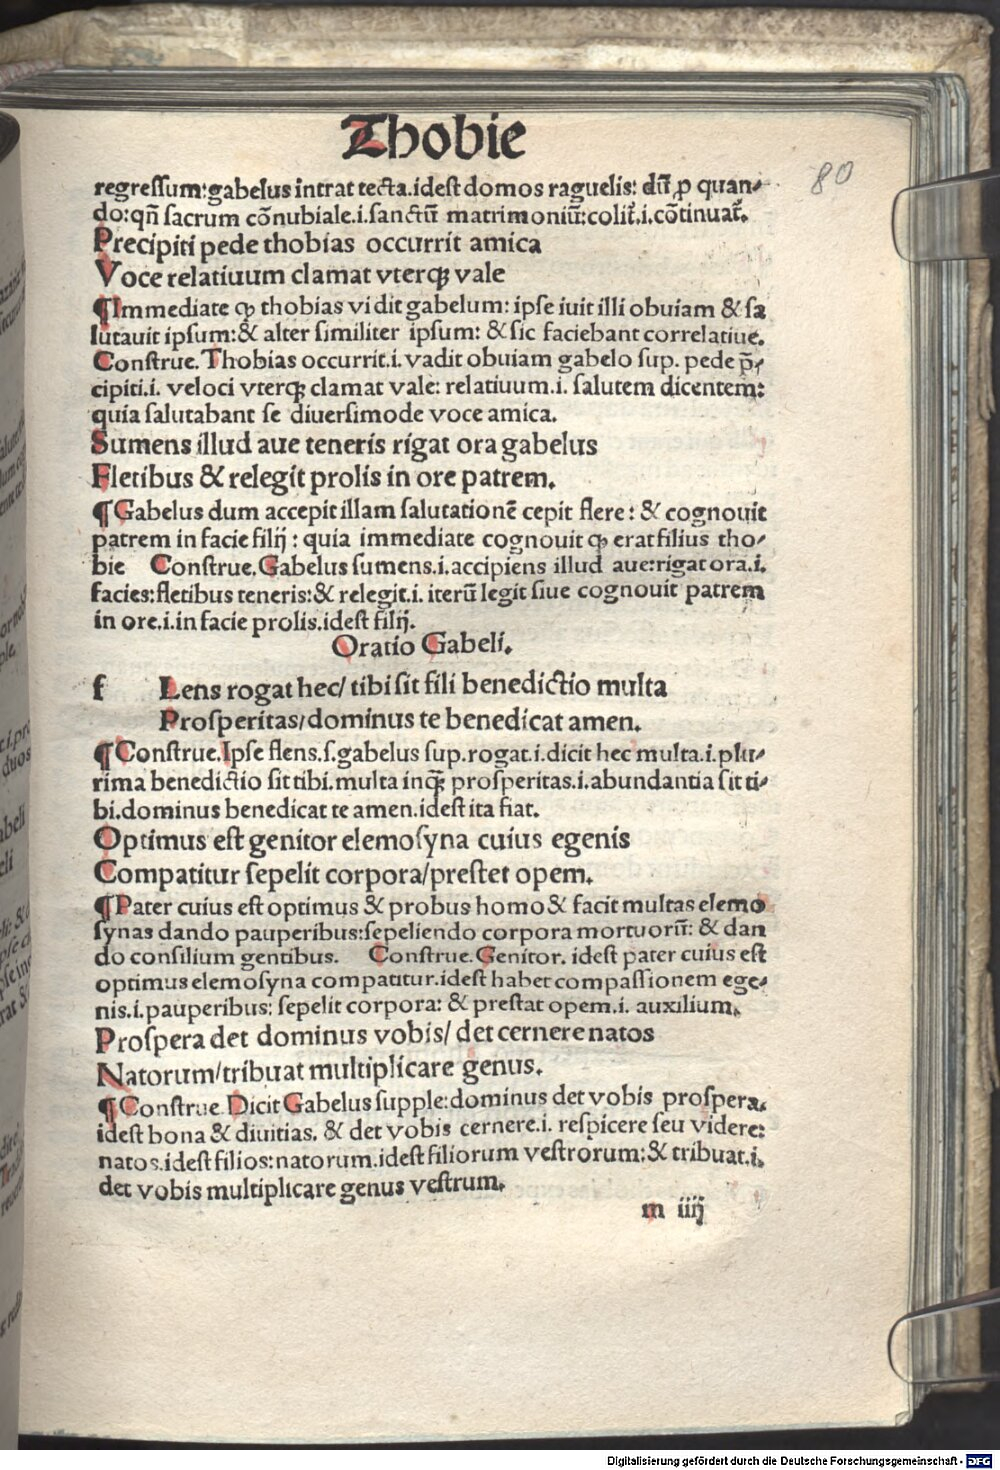 Thobie
80
regreſſum:gabelus intrat tecta.idest domos raguelis: dū ꝓ quan-
do:qn̄ sacrum cōnubiale.i.sanctū matrimoniū:colit̄.i.cōtinuat̄.
Precipiti pede thobias occurrit amica
Voce relatiuum clamat vterqꝫ vale
¶Immediate ꝙ thobias vidit gabelum: ipſe iuit illi obuiam & ſa
lutauit ipſum:& alter ſimiliter ipſum: & ſic faciebant correlatiue.
Conſtrue. Thobias occurrit.i. vadit obuiam gabelo ſup. pede p̄-
cipiti.i. veloci vterqꝫ clamat vale: relatiuum.i. ſalutem dicentem:
quia ſalutabant ſe diuerſimode voce amica.
Sumens illud aue teneris rigat ora gabelus
Fletibus & relegit prolis in ore patrem.
¶Gabelus dum accepit illam ſalutationē cepit flere: & cognouit
patrem in facie filij: quia immediate cognouit ꝙ erat filius tho-
bie Conſtrue. Gabelus ſumens.i.accipiens illud aue:rigat ora.i.
facies:fletibus teneris:& relegit.i. iterū legit ſiue cognouit patrem
in ore.i.in facie prolis.idest filij.
Oratio Gabeli.
f Lens rogat hec/ tibi ſit fili benedictio multa
Proſperitas/dominus te benedicat amen.
¶Conſtrue.Ipſe flens.ſ.gabelus ſup.rogat.i.dicit hec multa.i.plu-
rima benedictio ſit tibi.multa inqꝫ proſperitas.i.abundantia ſit ti-
bi.dominus benedicat te amen.idest ita fiat.
Optimus eſt genitor elemoſyna cuius egenis
Compatitur ſepelit corpora/preſtet opem.
¶Pater cuius eſt optimus & probus homo & facit multas elemo
ſynas dando pauperibus:ſepeliendo corpora mortuorū: & dan
do conſilium gentibus. Conſtrue.Genitor. idest pater cuius eſt
optimus elemoſyna compatitur.idest habet compaſſionem ege-
nis.i.pauperibus: ſepelit corpora: & preſtat opem.i. auxilium.
Proſpera det dominus vobis/ det cernere natos
Natorum/tribuat multiplicare genus.
¶Conſtrue Dicit Gabelus ſupple:dominus det vobis proſpera.
idest bona & diuitias. & det vobis cernere.i. reſpicere ſeu videre:
natos.idest filios:natorum.idest filiorum veſtrorum:& tribuat.i.
det vobis multiplicare genus veſtrum.
m iiij
Digitalisierung gefördert durch die Deutsche Forschungsgemeinschaft - DFG